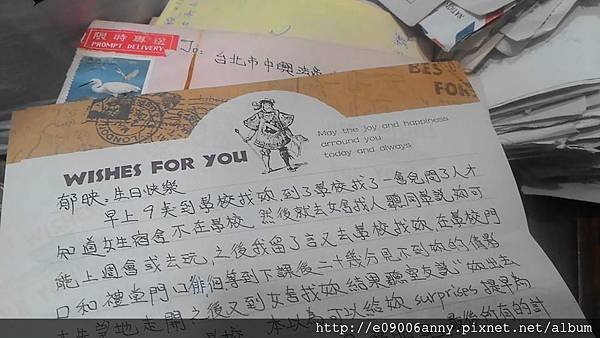 限時專送
PROMPT DELIVERY
To:
台北市中興法商
BES
FOR
LONDON
WISHES FOR YOU
May the joy and happiness
arround you
today and always
郁映:生日快樂
早上9点到學校找妳,到了學校找了一會兒問了人才
知道女生宿舍不在學校,然後就去女舍找人聽同學說妳可
能上週會或去玩,之後我留了言又去學校找妳,在學校門
口和禮堂門口徘徊等到下課後二十幾分見不到妳的倩影
走開之後又到女舍找妳結果聽室友說"妳出去
本以為可以給妳surprises
http://e09006anny.pixnet.net/album